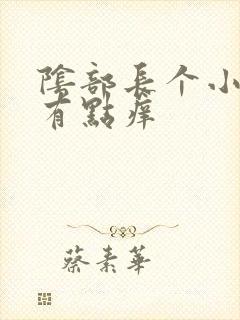 陰部長个小
有點癢
蔡素華